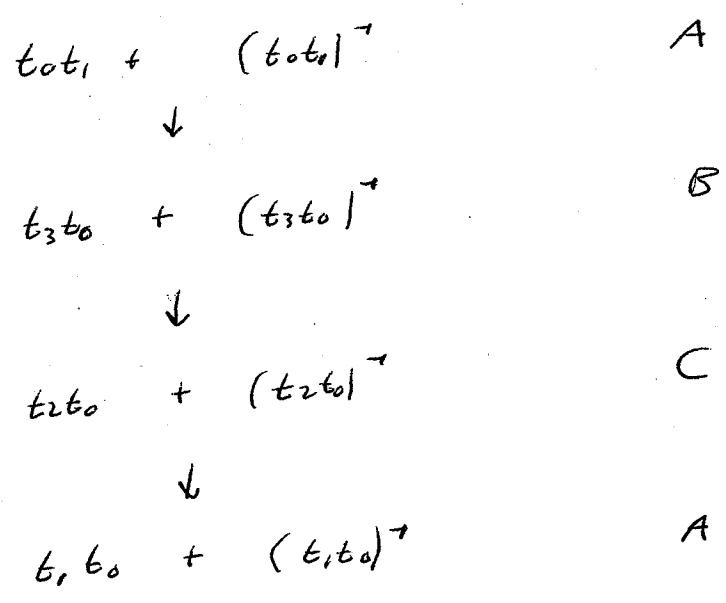 t₀t₁ + (t₀t₁)⁻¹ A
↓
t₃t₀ + (t₃t₀)⁻¹ B
↓
t₂t₀ + (t₂t₀)⁻¹ C
↓
t₁t₀ + (t₁t₀)⁻¹ A